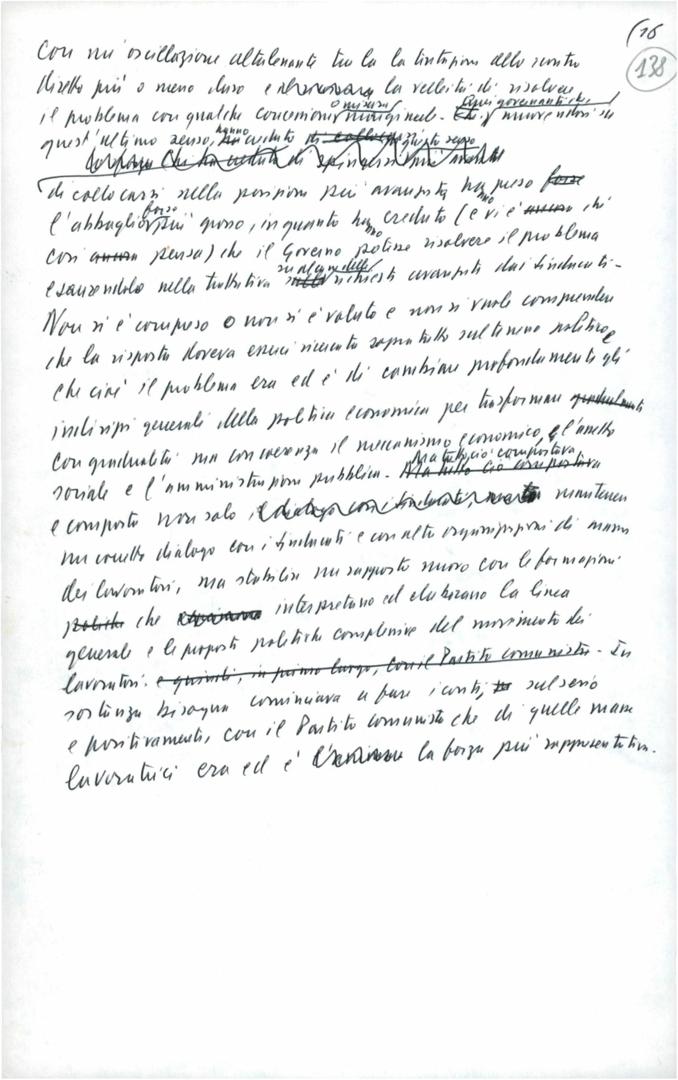 (16
138
con un'oscillazione altalenante tra la tentazione dello scontro
diretto più o meno duro e la velleità di risolvere
il problema con qualche concessione o misura marginale. Quei governanti che, muovendosi in
quest'ultimo senso, hanno creduto
di collocarsi nella posizione più avanzata hanno preso forse
l'abbaglio forse più grosso, in quanto hanno creduto (e vi è ancora chi
così ancora pensa) che il Governo potesse risolvere il problema
esaurendolo nella trattativa su alcune delle richieste avanzate dai sindacati.
Non si è compreso o non si è voluto e non si vuole comprendere
che la risposta doveva essere ricercata soprattutto sul terreno politico e
che cioè il problema era ed è di cambiare profondamente gli
indirizzi generali della politica economica per trasformare gradualmente
con gradualità ma con coerenza il meccanismo economico, l'assetto
sociale e l'amministrazione pubblica. Ma tutto ciò comportava Ma tutto ciò comportava
e comporta non solo mantenere
un corretto dialogo con i sindacati e con altre organizzazioni di massa
dei lavoratori, ma stabilire un rapporto nuovo con le formazioni
politiche che interpretano ed elaborano la linea
generale e le proposte politiche complessive del movimento dei
lavoratori. e quindi, in primo luogo, con il Partito comunista. In
sostanza bisogna cominciava a fare i conti, sul serio
e positivamente, con il Partito comunista che di quelle masse
lavoratrici era ed è la forza più rappresentativa.